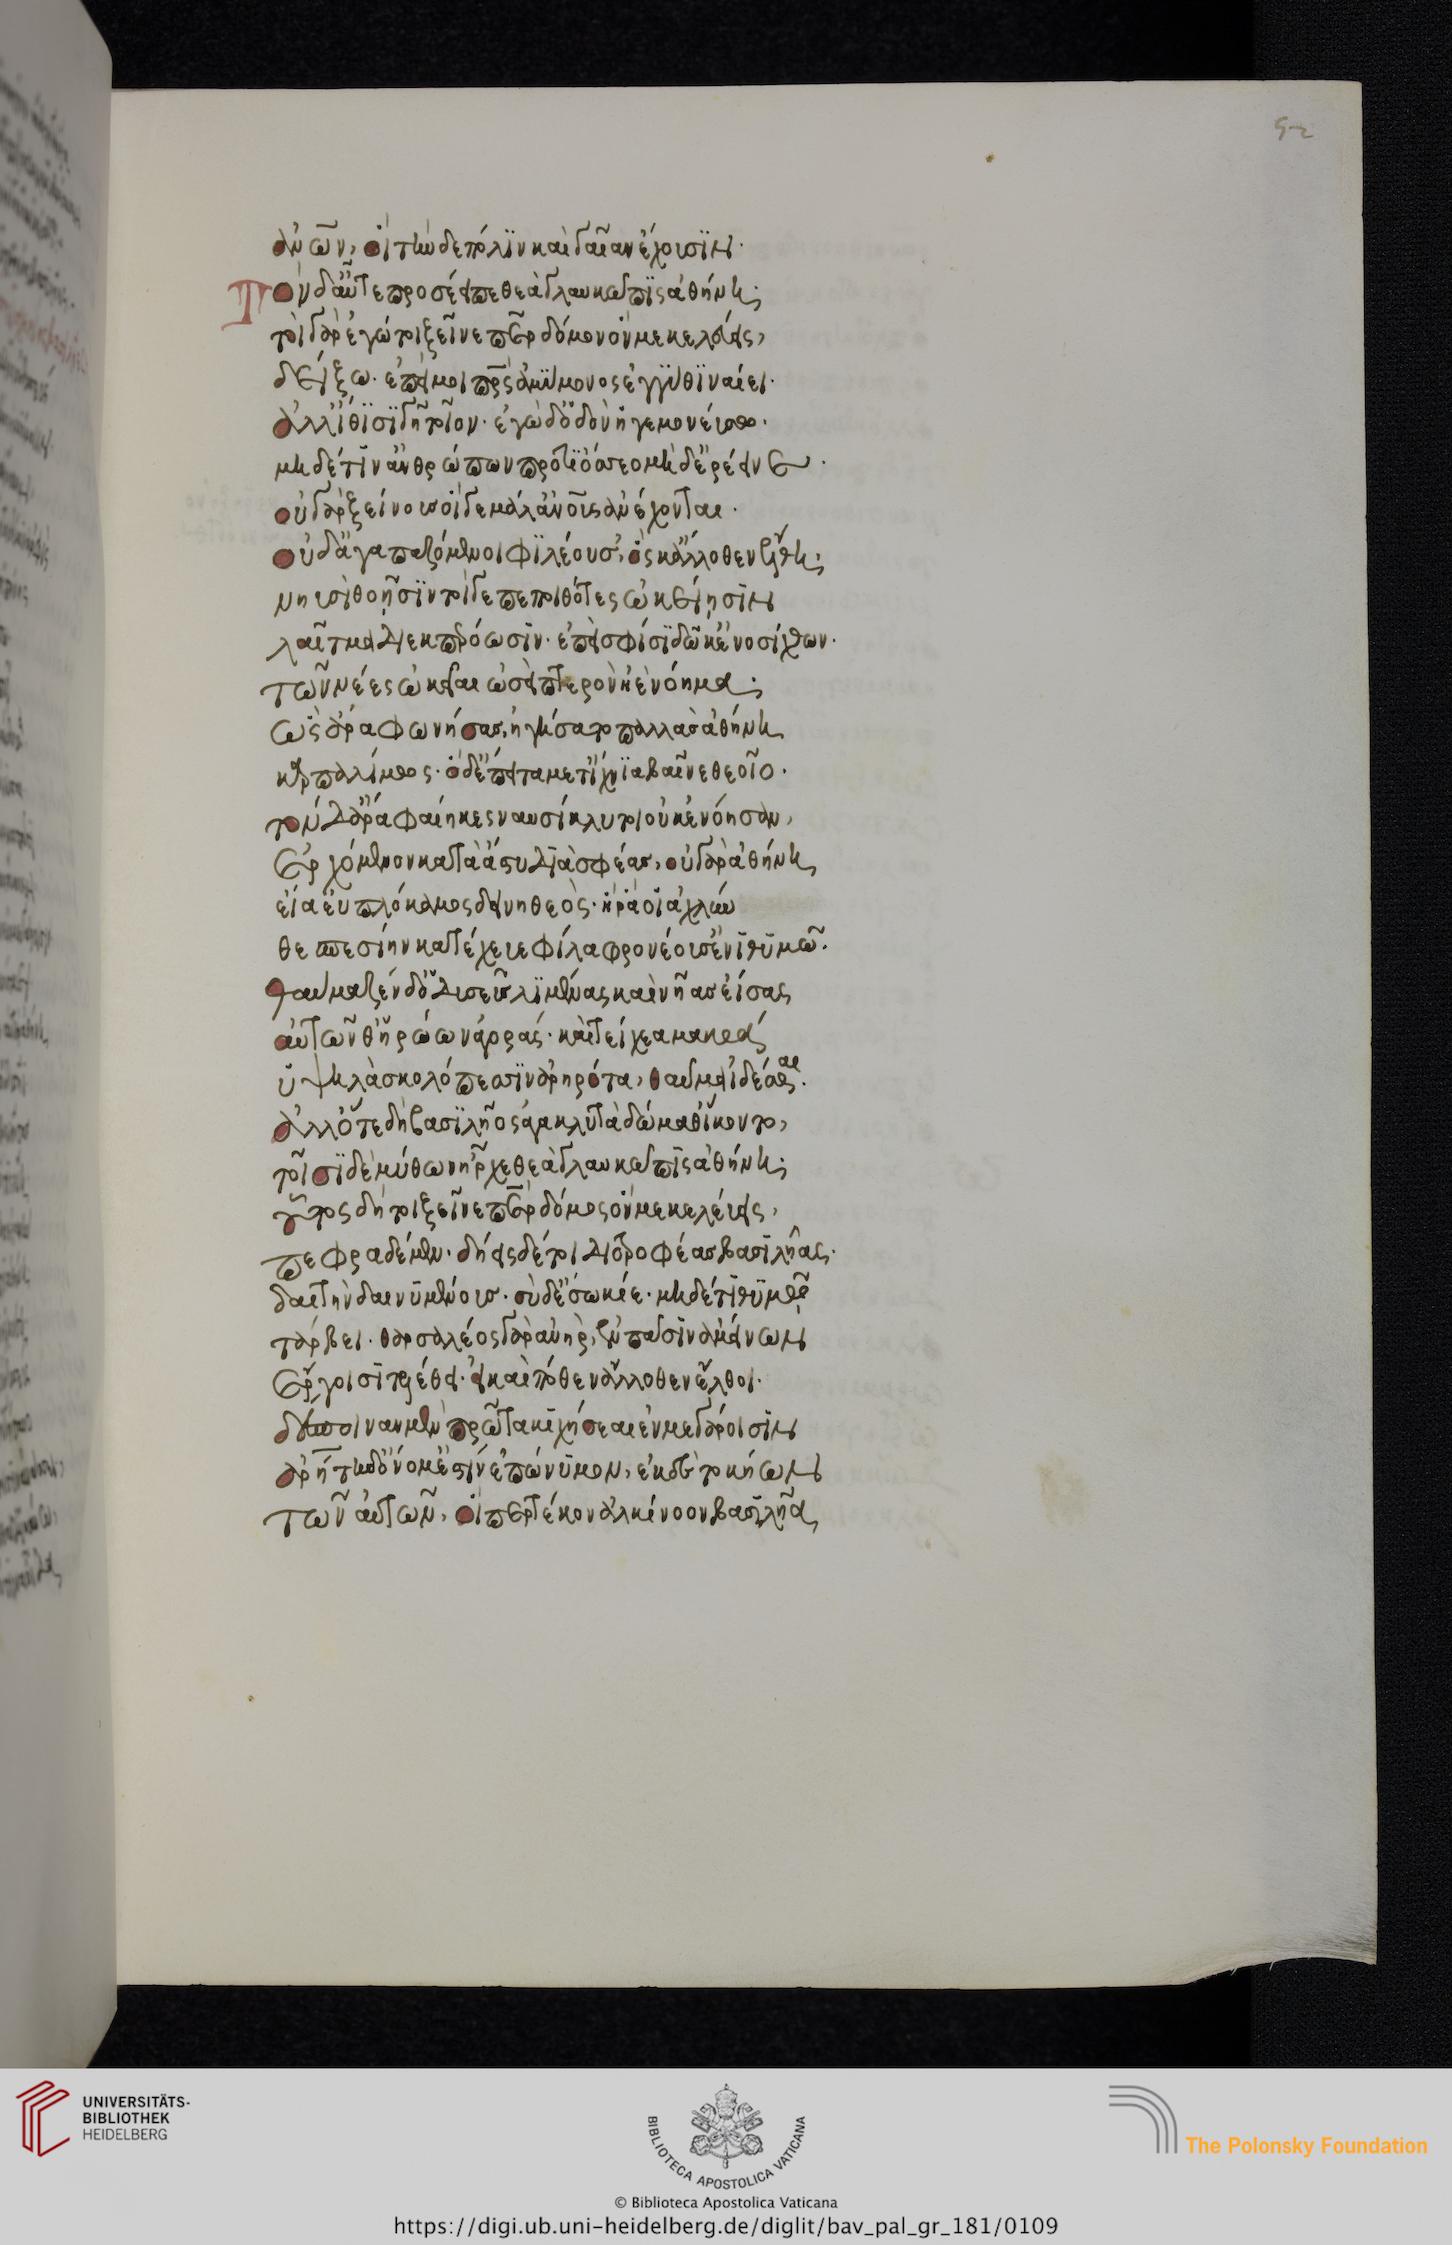 ἀνῶν, οἳ τήνδε πόλιν καὶ γαῖαν ἔχουσιν.
Τὸν δ' αὖτε προσέειπε θεὰ γλαυκῶπις ἀθήνη·
τοὶ γὰρ ἐγώ τοι ξεῖνε περ δόμον ὅν με κελεύεις,
δείξω· ἐπεί μοι πρς ἀμύμονος ἐγγύθι ναίει.
ἀλλ' ἴθι σιγῇ τοῖον· ἐγὼ δ' ὁδὸν ἡγεμονεύσω.
μηδέ τιν' ἀνθρώπων προτιόσσεο μηδ' ἐρέεινε.
οὐ γὰρ ξείνους οἵδε μάλ' ἀνους ἀνέχονται.
οὐδ' ἀγαπαζόμενοι φιλέουσ', ὅς κ' ἄλλοθεν ἔλθη·
νηυσὶ θοῇσιν τοί γε πεποιθότες ὠκείῃσιν
λαῖτμα διεκπερόωσιν· ἐπεί σφισι δῶκ' ἐνοσίχθων.
τῶν νέες ὠκεῖαι ὡσεὶ πτερὸν ἠὲ νόημα·
ὣς ἄρα φωνήσασ', ἡγήσατο παλλὰς ἀθήνη,
καρπαλίμως· ὁ δ' ἔπειτα μετ' ἴχνια βαῖνε θεοῖο.
τὸν δ' ἄρα φαίηκες ναυσίκλυτοι οὐκ ἐνόησαν,
ἐρχόμενον κατὰ ἄστυ διὰ σφέας, οὐ γὰρ ἀθήνη,
εἴα ἐυπλόκαμος δεινὴ θεὸς· ἥ ῥά οἱ ἀχλὺν
θεσπεσίην κατέχευε φίλα φρονέουσ' ἐνὶ θυμῶ.
θαύμαζεν δ' ὀδυσεὺς λιμένας καὶ νῆας ἐΐσας
αὐτῶν θ' ἡρώων ἀγοράς· καὶ τείχεα μακρά
ὑψηλὰ σκολόπεσσιν ἀρηρότα, θαῦμα ἰδέσθαι.
ἀλλ' ὅτε δὴ βασιλῆος ἀγακλυτὰ δώμαθ' ἵκοντο,
τοῖσι δὲ μύθων ἦρχε θεὰ γλαυκῶπις ἀθήνη·
οὗτος δή τοι ξεῖνε περ δόμος ὅν με κελεύεις,
πεφραδέμεν· δήεις δέ τοι διοτροφέας βασιλῆας·
δαίτην δαινυμένους· σὺ δ' ἔσω κίε· μηδέ τι θυμῶ
τάρβει· θαρσαλέος γὰρ ἀνὴρ, ἐν πᾶσιν ἀμείνων
ἔργοισι τελέθει· εἰ καὶ ποθεν ἄλλοθεν ἔλθοι.
δέσποιναν μὲν πρῶτα κιχήσεαι ἐν μεγάροισιν
ἀρήτη δ' ὄνομ' ἐστὶν ἐπώνυμον, ἐκ δὲ τοκήων
τῶν αὐτῶν, οἵπερ τέκον ἀλκίνοον βασιλῆα,
UNIVERSITÄTS-
BIBLIOTHEK
HEIDELBERG
BIBLIOTECA APOSTOLICA VATICANA
The Polonsky Foundation
© Biblioteca Apostolica Vaticana
https://digi.ub.uni-heidelberg.de/diglit/bav_pal_gr_181/0109